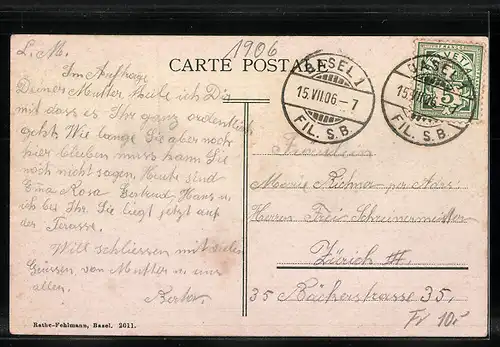 1906
L. M.
CARTE POSTALE
BASEL 1
15.VII.06-7
FIL. S.B.
BASEL
15.VII.06
FIL. S.B.
HELVETIA
5
Im Auftrage
Deiner Mutter teile ich Dir
mit dass es Ihr ganz ordentlich
geht. Wie lange Sie aber noch
hier bleiben muss kann Sie
noch nicht sagen. Heute sind
Rosa Gertrud, Hans u.
ich bei Ihr. Sie liegt jetzt auf
der Terasse.
Will schliessen mit vielen
Grüssen von Mutter u. uns
allen.
Fräulein
Marie pr. Adr.
Herrn Frei Schreinermeister
Zürich III.
35 Bäckerstrasse 35.
Fr 10.-
Rathe-Fehlmann, Basel. 2611.